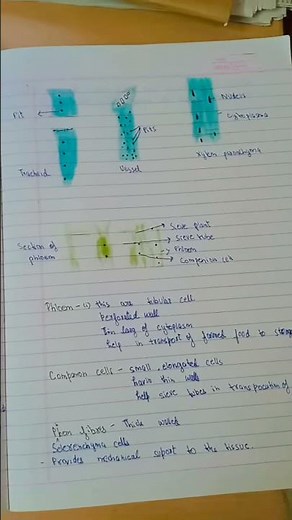 Nucleus
Pit
Cytoplasm
Pits
Tracheid
Vessel
Xylem parenchyma
Sieve plant
Sieve tube
Section of
phloem
Phloem
Companion cell
Phloem - (i) this are tubular cell
perforated wall
Thin larg of cytoplasm
help in transport of formed food to storage
Companion cells - small, elongated cells
havis thin wall
help sieve tubes in transpocation of
fibres - Thick walled
Sclerenchyma cells
- Provides mechanical supert to the tissue.